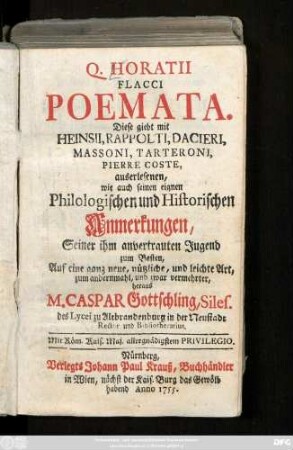 Q. HORATII
FLACCI
POEMATA.
Diese giebt mit
HEINSII, RAPPOLTI, DACIERI,
MASSONI, TARTERONI,
PIERRE COSTE,
auserlesenen,
wie auch seinen eignen
Philologischen und Historischen
Anmerkungen,
Seiner ihm anvertrauten Jugend
zum Besten,
Auf eine ganz neue, nützliche, und leichte Art,
zum andernmahl, und zwar vermehrter,
heraus
M. CASPAR Gottschling, Siles.
des Lycei zu Altbrandenburg in der Neustadt
Rector und Bibliothecarius.
Mit Röm. Kaiß. Maj. allergnädigstem PRIVILEGIO.
Nürnberg,
Verlegts Johann Paul Krauß, Buchhändler
in Wien, nächst der Kais. Burg das Gewölb
habend Anno 1755.